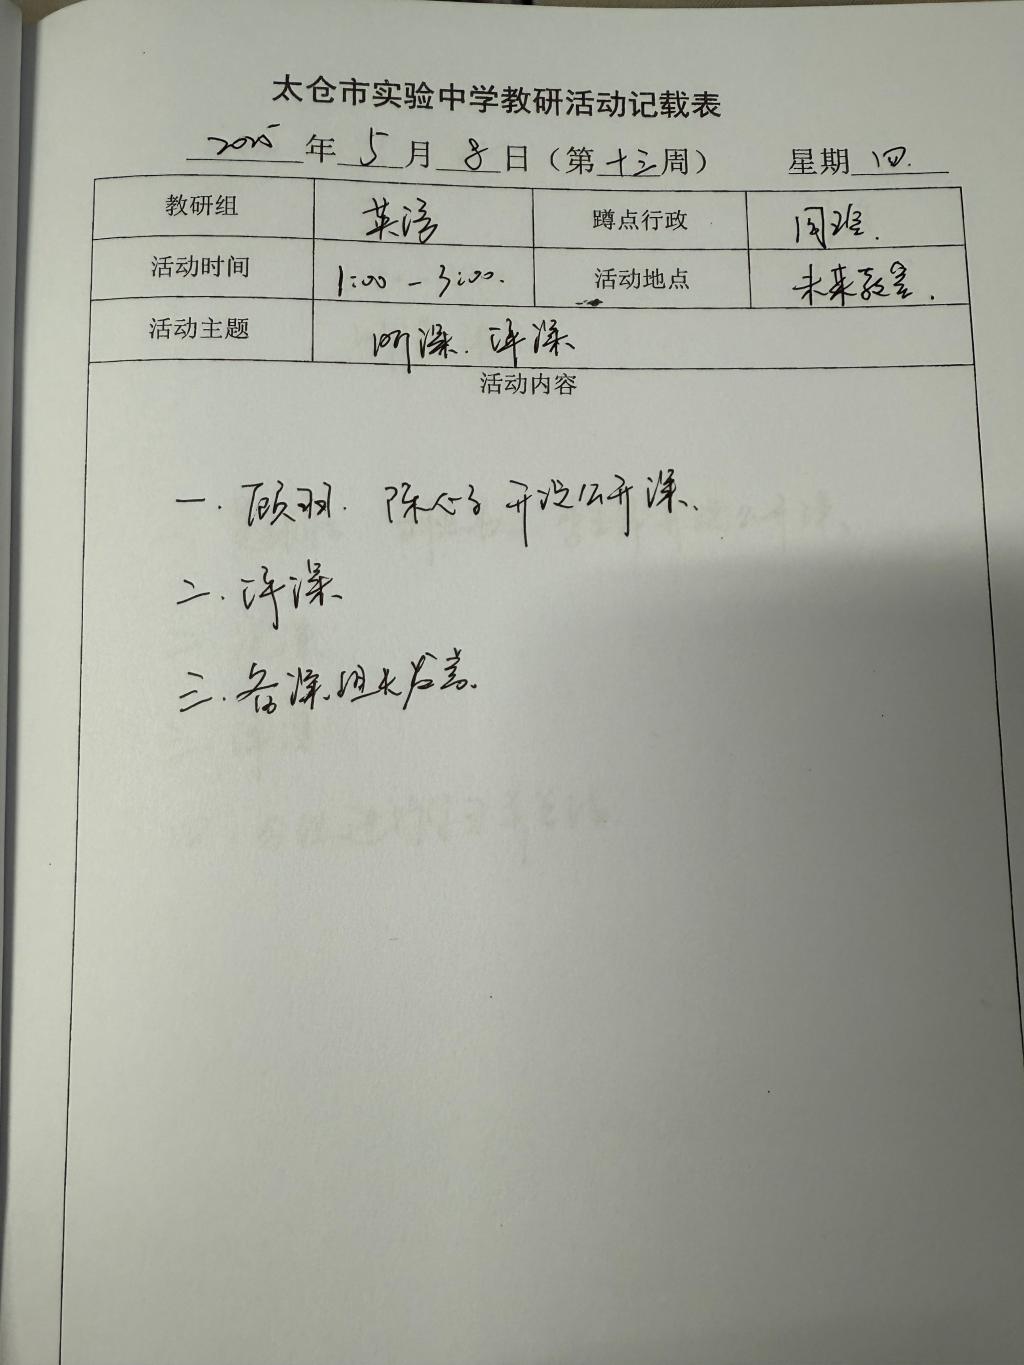 太仓市实验中学教研活动记载表
2025年5月8日（第十三周） 星期四.
教研组 英语 蹲点行政 周
活动时间 1:00-3:00. 活动地点 未来教室.
活动主题 听课.评课
活动内容
一.顾羽.陈心子开设公开课.
二.评课.
三.备课组长发言.